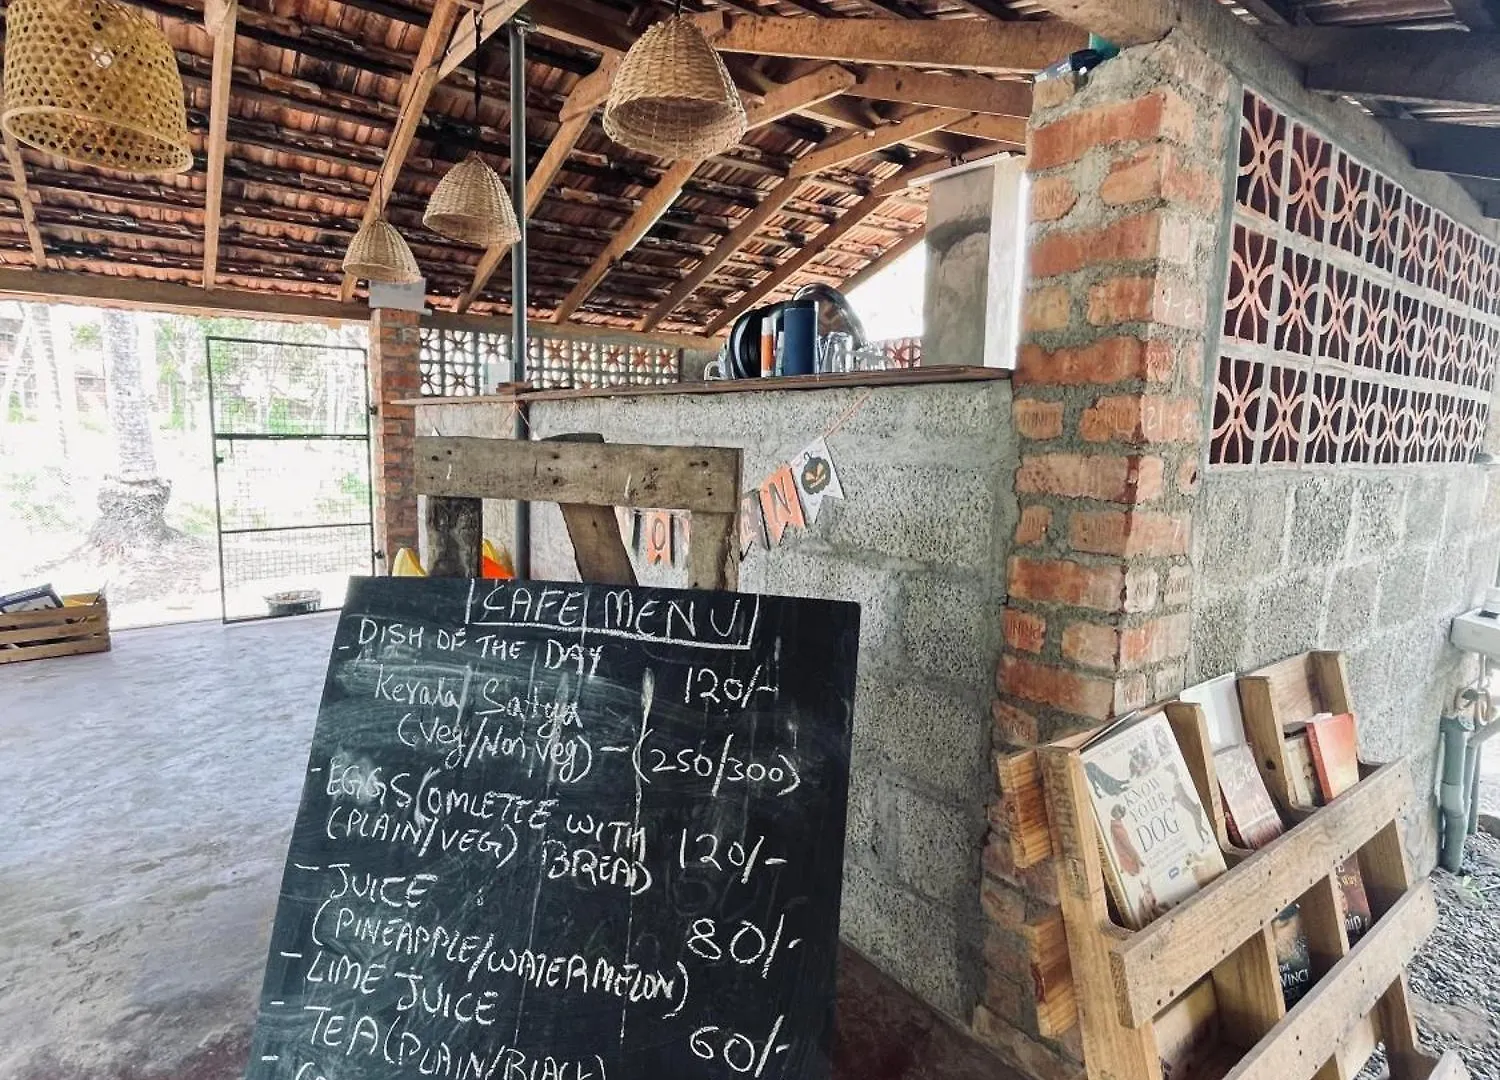 CAFE MENU
- DISH OF THE DAY
120/-
Kerala Satya
(Veg/Non Veg) - (250/300)
- EGGS (OMLETTE WITH
(PLAIN/VEG) BREAD 120/-
- JUICE
(PINEAPPLE/WATERMELON) 80/-
- LIME JUICE
- TEA (PLAIN/BLACK) 60/-
KNOW
YOUR
DOG
THE
VINCI